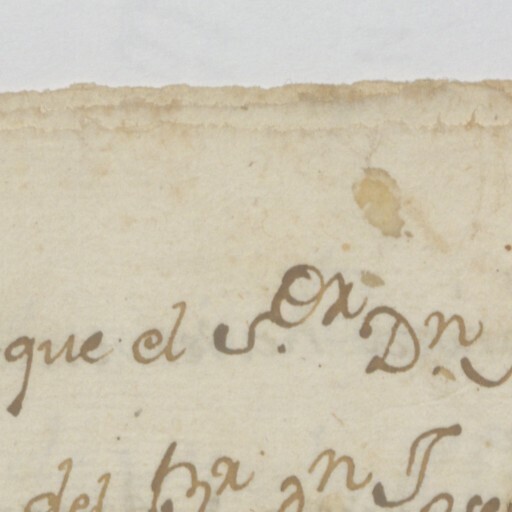 que el S.or D.n
del S.r D.n J